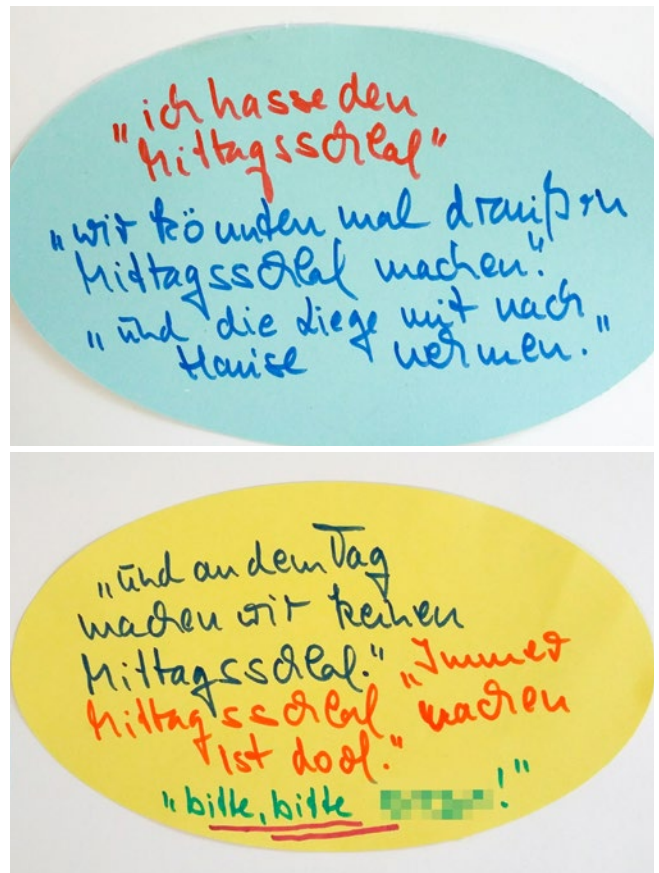 "ich hasse den
Mittagsschlaf"
"wir könnten mal draußen
Mittagsschlaf machen."
"und die Liege mit nach
Hause nehmen."
"und an dem Tag
machen wir keinen
Mittagsschlaf." "Immer
Mittagsschlaf machen
ist doof."
"bitte, bitte !"